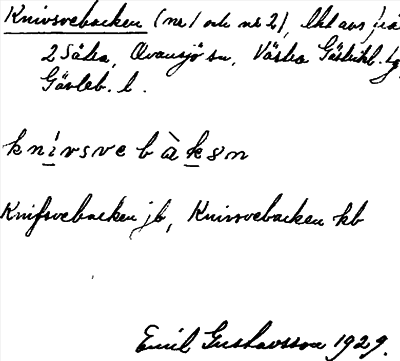 Knivsvebacken (nr 1 och nr 2), lht avs från
2 Säka, Ovansjö sn, Västra Gästrikl. tg
Gävleb. l.
knivsvebàkən
Knifsvebacken jb, Knivsvebacken kb
Emil Gustavsson 1929.